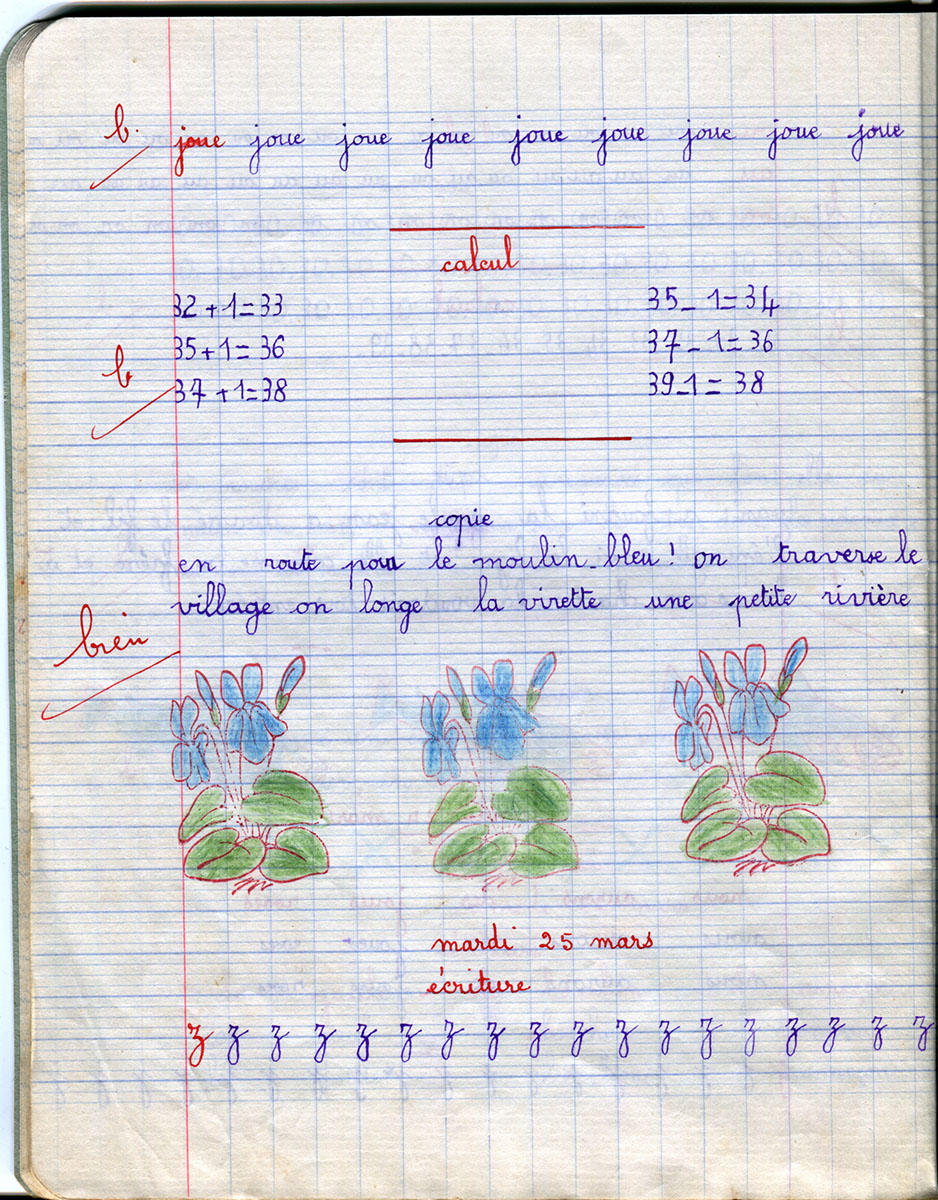 b. joue joue joue joue joue joue joue joue joue
calcul
32 + 1 = 33 35 - 1 = 34
35 + 1 = 36 37 - 1 = 36
b 37 + 1 = 38 39 - 1 = 38
copie
en route pour le moulin-bleu! on traverse le
village on longe la virette une petite rivière
bien
mardi 25 mars
écriture
z z z z z z z z z z z z z z z z z z